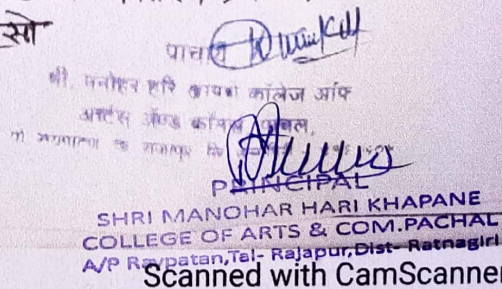 सो
प्राचार्य
श्री. मनोहर हरि खापणे कॉलेज ऑफ
आर्टस् ॲण्ड कॉमर्स पाचल,
PRINCIPAL
SHRI MANOHAR HARI KHAPANE
COLLEGE OF ARTS & COM.PACHAL
A/P Raypatan,Tal- Rajapur,Dist- Ratnagiri
Scanned with CamScanner